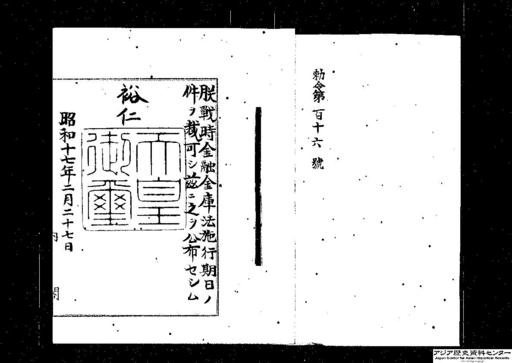 勅令第百十六號
朕戰時金融金庫法施行期日ノ
件ヲ裁可シ茲ニ之ヲ公布セシム
裕仁
天皇
御璽
昭和十七年二月二十七日
内
閣
アジア歴史資料センター
Japan Center for Asian Historical Records